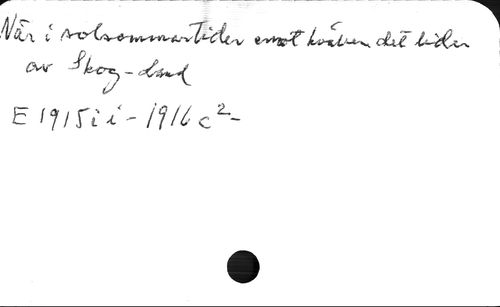 När i solsommartider emot kvällen det lider
av Skog-Lund
E 1915 i i - 1916 c² -